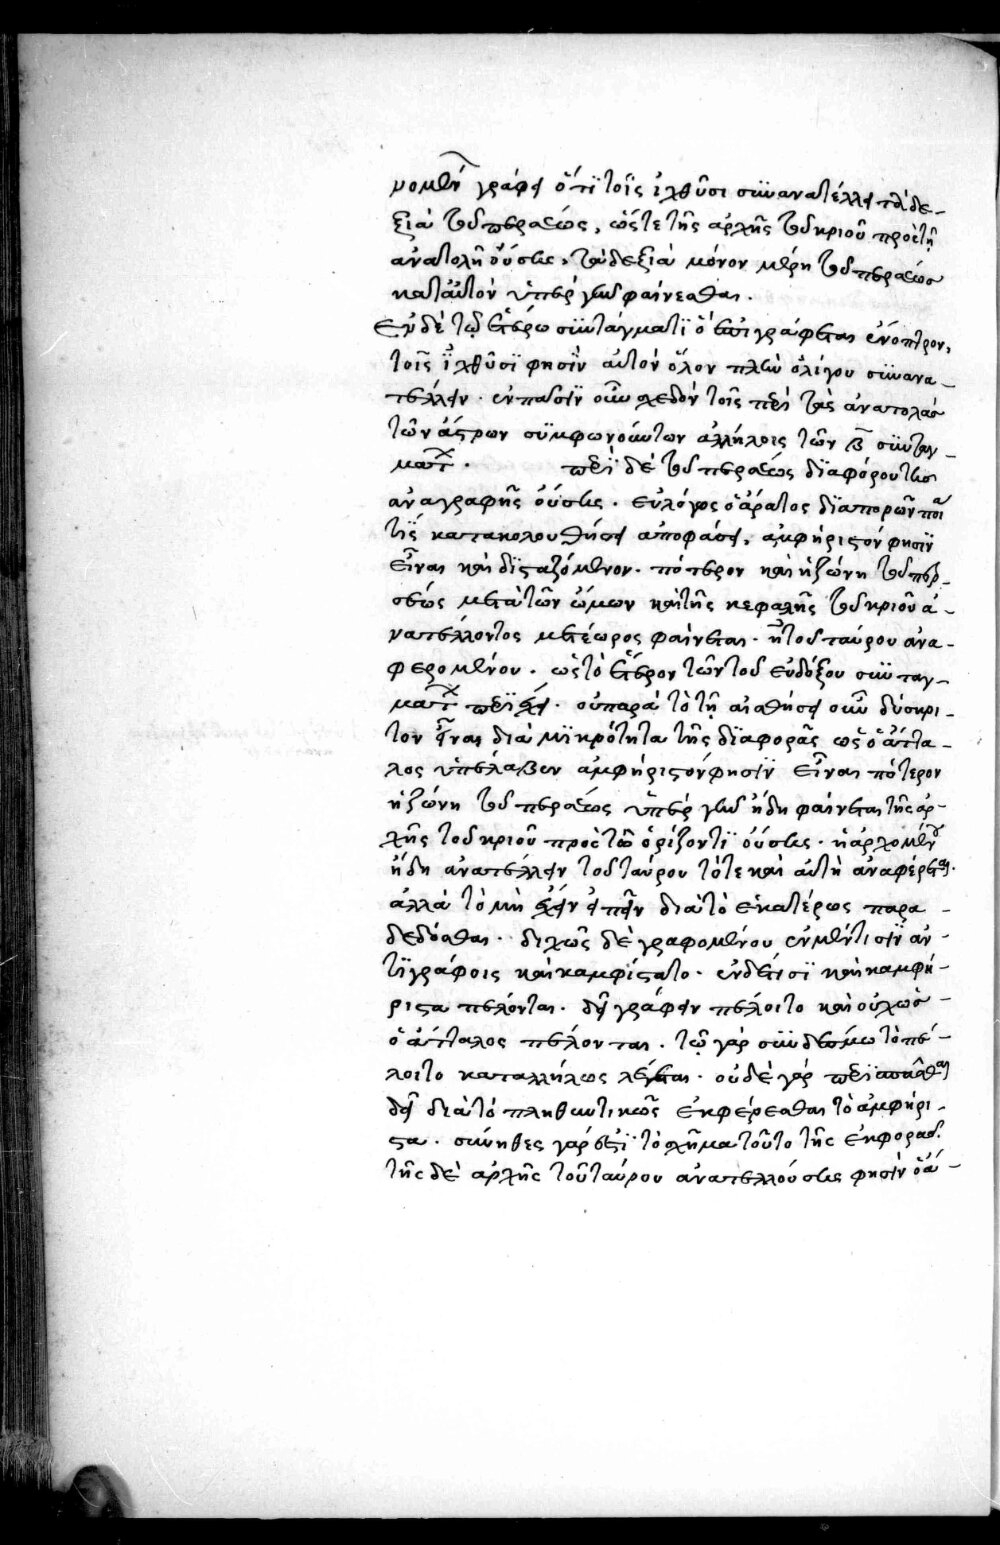 νομένων γράφει ὅτι τοῖς ἰχθῦσι συνανατέλλει τὰ δε-
ξιὰ τοῦ περσέως, ὥστε τῆς ἀρχῆς τοῦ κριοῦ πρὸς τῇ
ἀνατολῇ οὔσης, τὰ δεξιὰ μόνον μέρη τοῦ περσέως
κατ' αὐτὸν ὑπὲρ γῆν φαίνεσθαι.
ἐν δὲ τῷ ἑτέρῳ συντάγματι ὃ ἐπιγράφεται ἔνοπτρον,
τοῖς ἰχθῦσι φησὶν αὐτὸν ὅλον πλὴν ὀλίγου συνανα-
τέλλειν. ἐν πᾶσιν οὖν σχεδὸν τοῖς περὶ τὰς ἀνατολὰς
τῶν ἄστρων συμφωνούντων ἀλλήλοις τῶν β συνταγ-
μάτων. περὶ δὲ τοῦ περσέως διαφόρου τῆς
ἀναγραφῆς οὔσης. εὐλόγως ὁ ἄρατος διαπορῶν ποίᾳ
τις κατακολουθήσει ἀποφάσει, ἀμφήριστόν φησιν
εἶναι καὶ δισταζόμενον. πότερον καὶ ἡ ζώνη τοῦ περ-
σέως μετὰ τῶν ὤμων καὶ τῆς κεφαλῆς τοῦ κριοῦ ἀ-
νατέλλοντος μετέωρος φαίνεται. ἢ τοῦ ταύρου ἀνα-
φερομένου. ὡς τὸ ἕτερον τῶν τοῦ εὐδόξου συνταγ-
μάτων περιέχει. οὐ παρὰ τὸ τῇ αἰσθήσει οὖν δύσκρι-
τον εἶναι διὰ μικρότητα τῆς διαφορᾶς ὡς ὁ ἄττα-
λος ὑπέλαβεν ἀμφήριστόν φησιν εἶναι πότερον
ἡ ζώνη τοῦ περσέως ὑπὲρ γῆν ἤδη φαίνεται τῆς ἀρ-
χῆς τοῦ κριοῦ πρὸς τῷ ὁρίζοντι οὔσης. ἢ ἀρχομένου
ἤδη ἀνατέλλειν τοῦ ταύρου τότε καὶ αὐτὴ ἀναφέρεται.
ἀλλὰ τὸ μὴ ἔχειν εἰπεῖν διὰ τὸ ἑκατέρως παρα-
δεδόσθαι. διχῶς δὲ γραφομένου ἐν μέν τισιν ἀν-
τιγράφοις καὶ κ' ἀμφίστατο. ἐν δέ τισι καὶ κ' ἀμφή-
ριστα πέλονται. δεῖ γράφειν πέλοιτο καὶ οὐχ ὡς
ὁ ἄτταλος πέλονται. τῷ γὰρ συνδέσμῳ τὸ πέ-
λοιτο καταλλήλως λέγεται. οὐδὲ γὰρ περισπᾶσθαι
δεῖ διὰ τὸ πληθυντικῶς ἐκφέρεσθαι τὸ ἀμφήρι-
στα. σύνηθες γάρ ἐστι τὸ σχῆμα τοῦτο τῆς ἐκφορᾶς.
τῆς δὲ ἀρχῆς τοῦ ταύρου ἀνατελλούσης φησὶν ὁ ἄ-